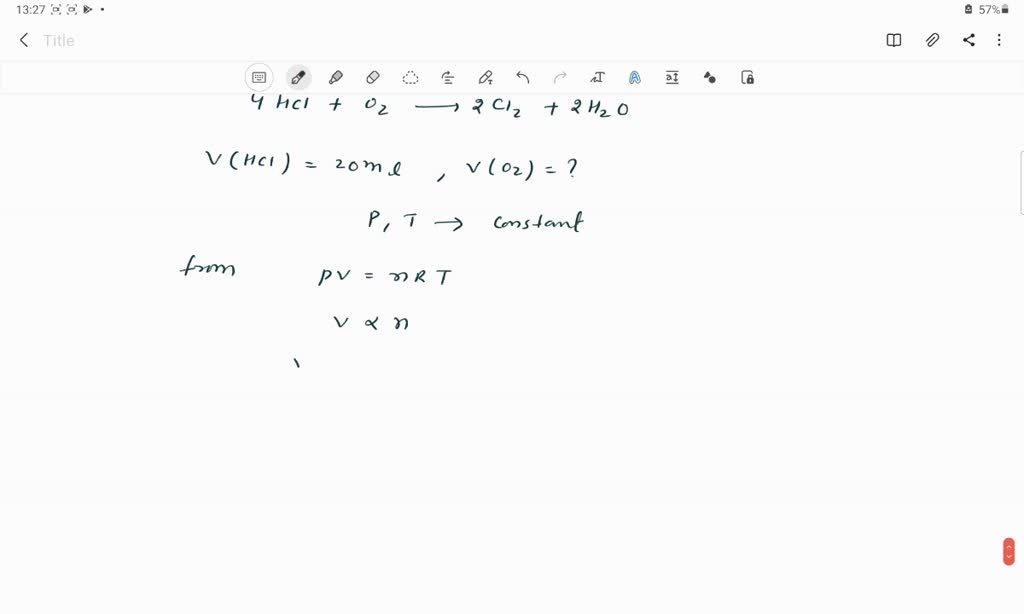 13:27 57%
Title
4 HCl + O₂ ⟶ 2 Cl₂ + 2 H₂O
V(HCl) = 20ml , V(O₂) = ?
P, T → constant
from PV = nRT
V ∝ n